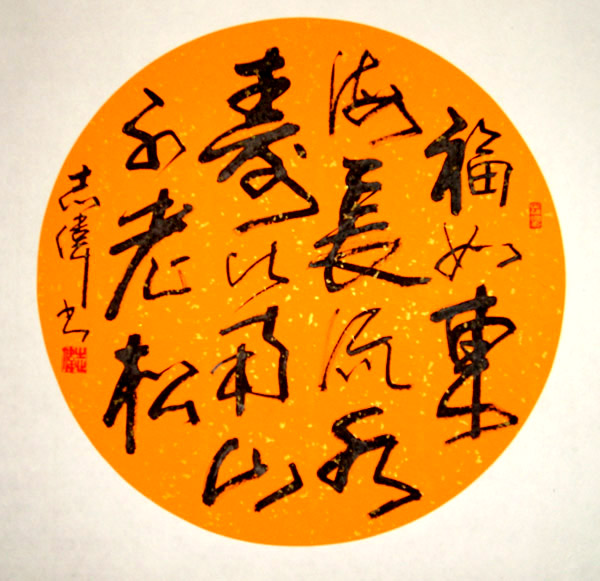 福如東
海長流水
壽比南山
不老松
志偉书